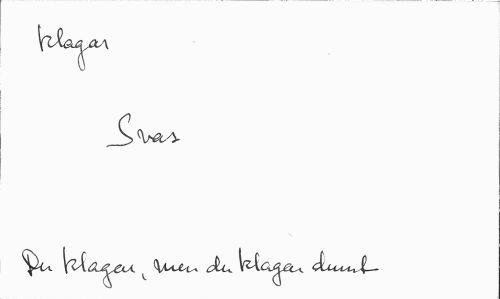 klagar
Svas
Du klagar, men du klagar dumt